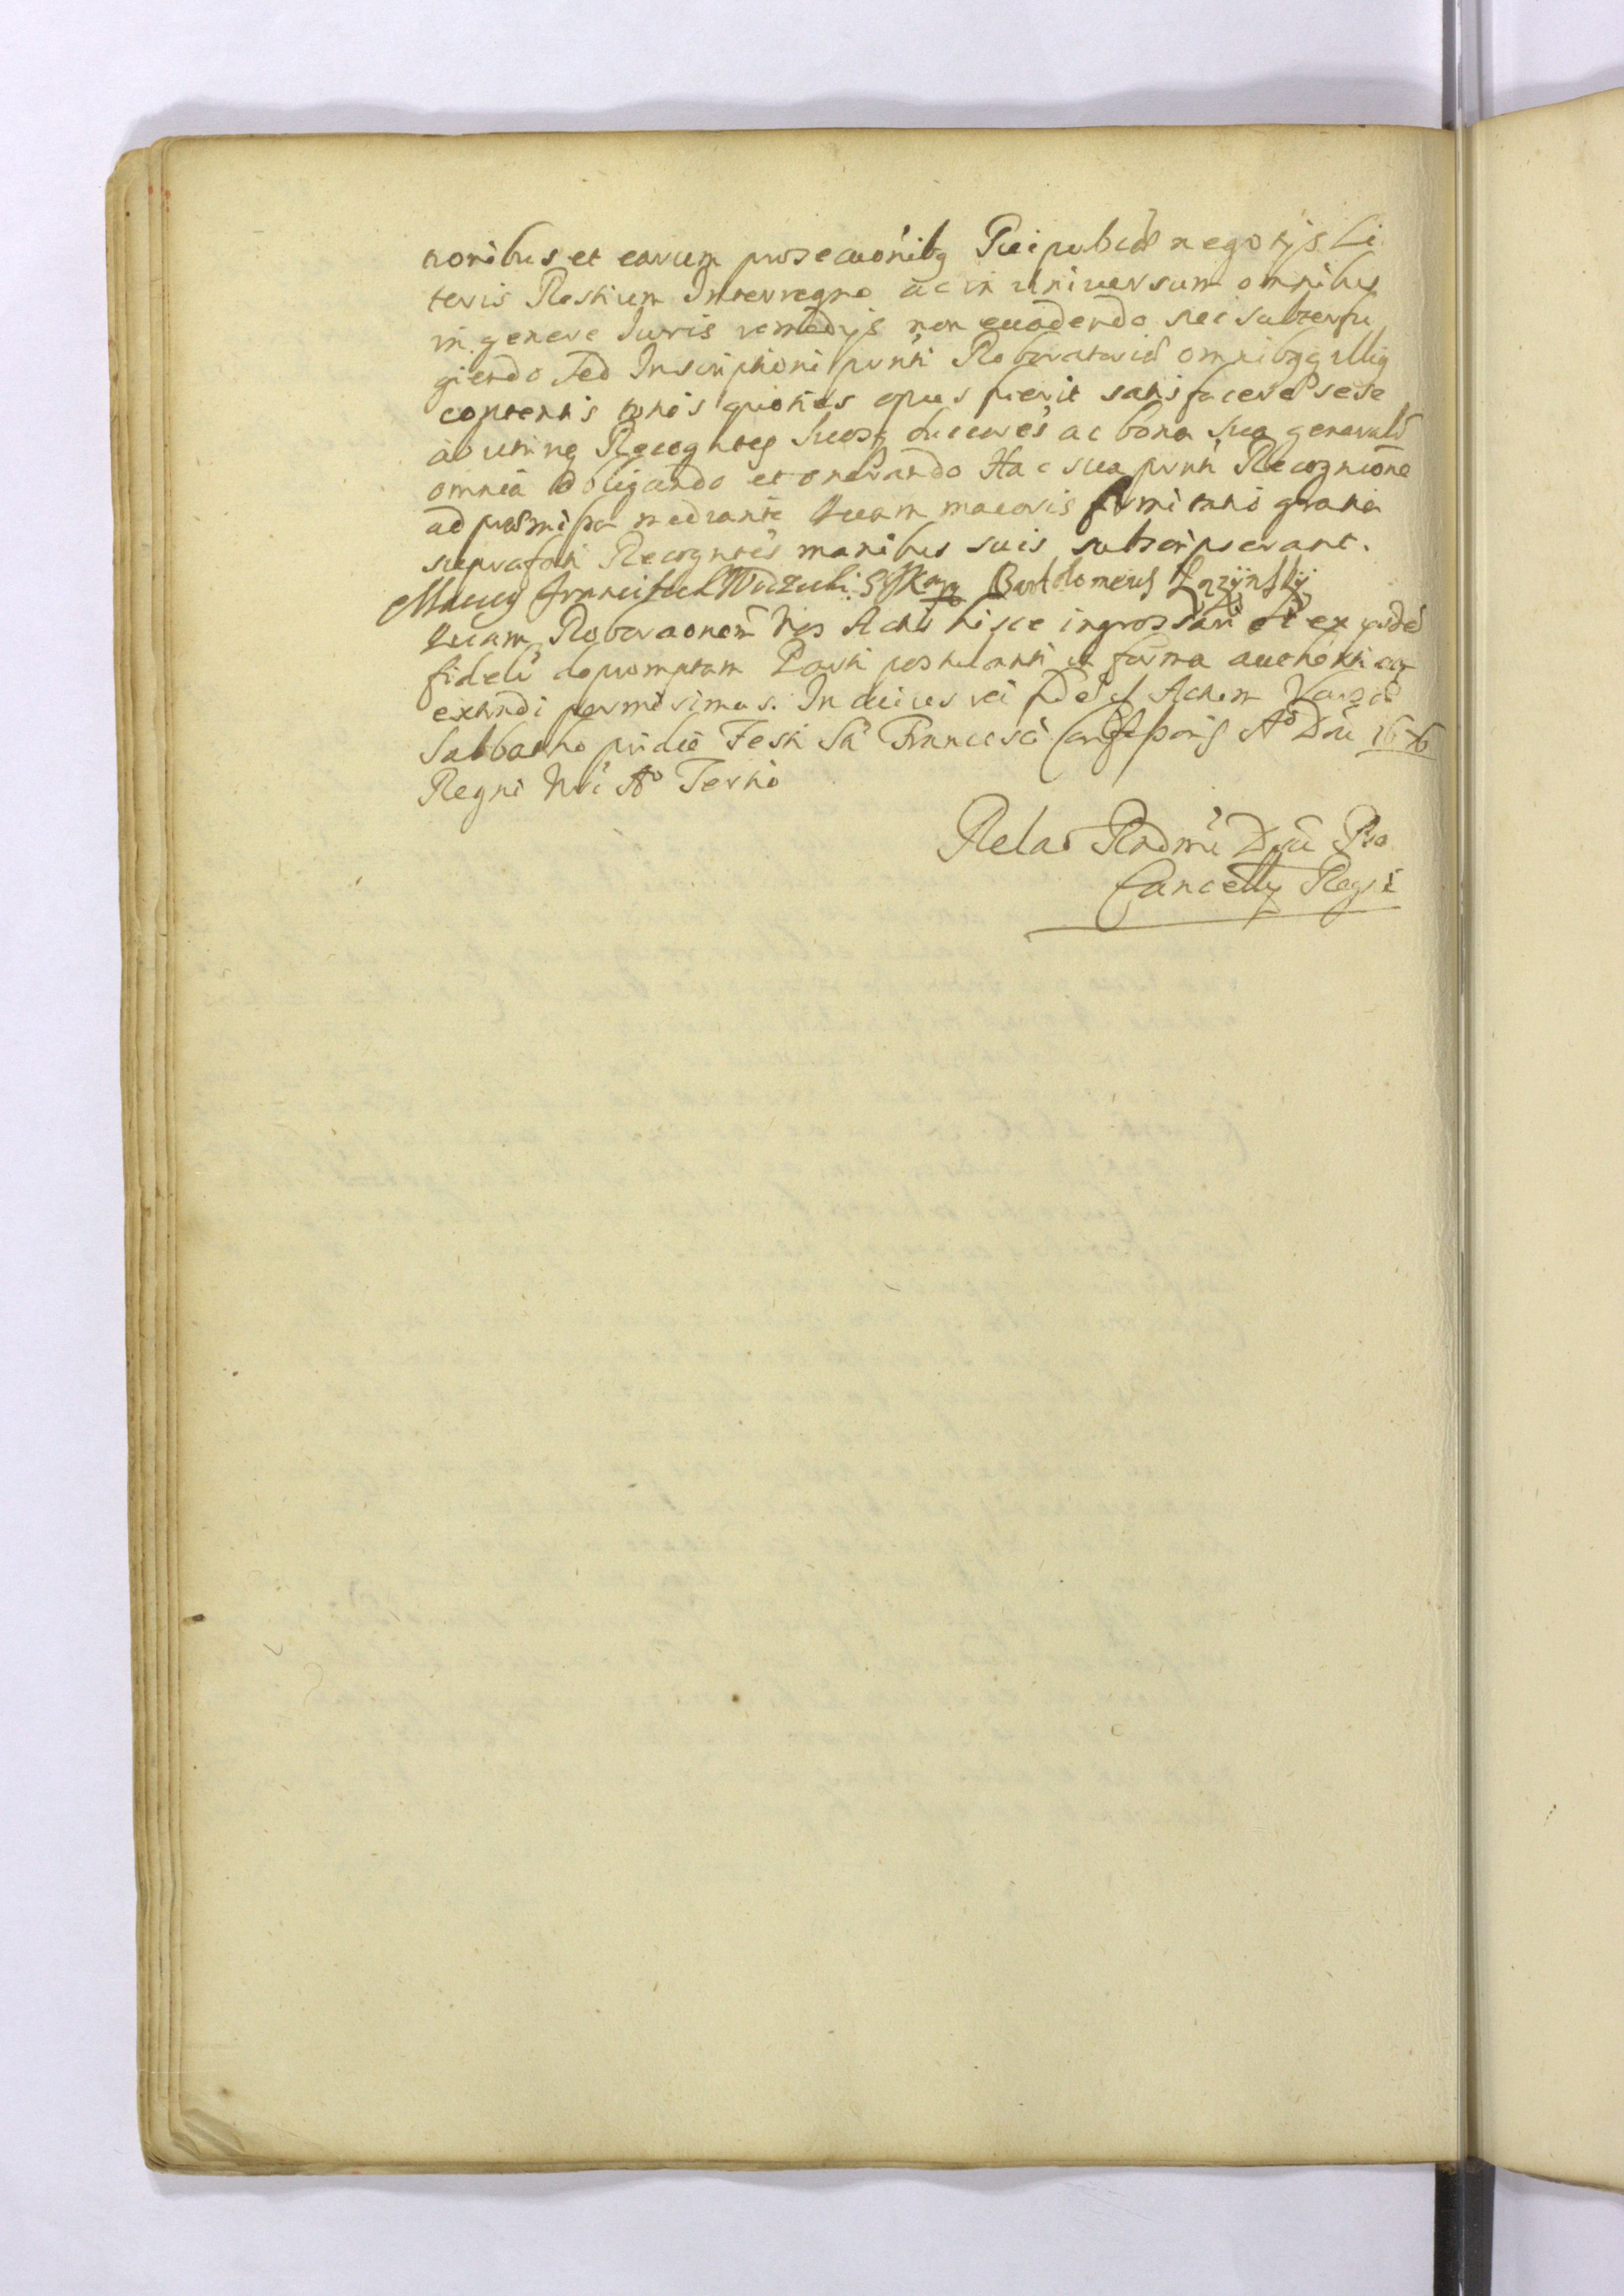 tionibus et earum prosecuõnibq Reipublcæ negotijs Li
teris Restium Interregno ac in universum omnibus
in genere Iuris remedijs non evadendo nec subterfu
giendo Sed Inscriptioni pnti Roboratoriæ omnibq illiq
contentis toties quoties opus fuerit satisfacere sese
ab utrinq Recogntes Suosq succres ac bona sua generalr
omnia obligando et onerando Hac sua pnti Recognitione
ad præmissa mediante Quam maioris firmitatis gratia
suprafati Recogntes manibus suis subscripserant.
Maciey Franciszek Bartolomeus Łązÿnskÿ
Quam Roboraonem Nos Actis hisce ingrossari et ex ysdẽ
fideli depromptam Parti postulanti in forma authentica
extradi permisimus. In cuius rei fidẽ Actum Varsæ
Sabbatho pridie Festi Sti Francisci Confessoris Aº Dni 1676
Regni Nri Aº Tertio
Relaõ Rndmi Dni Pro
Cancellrij Regni